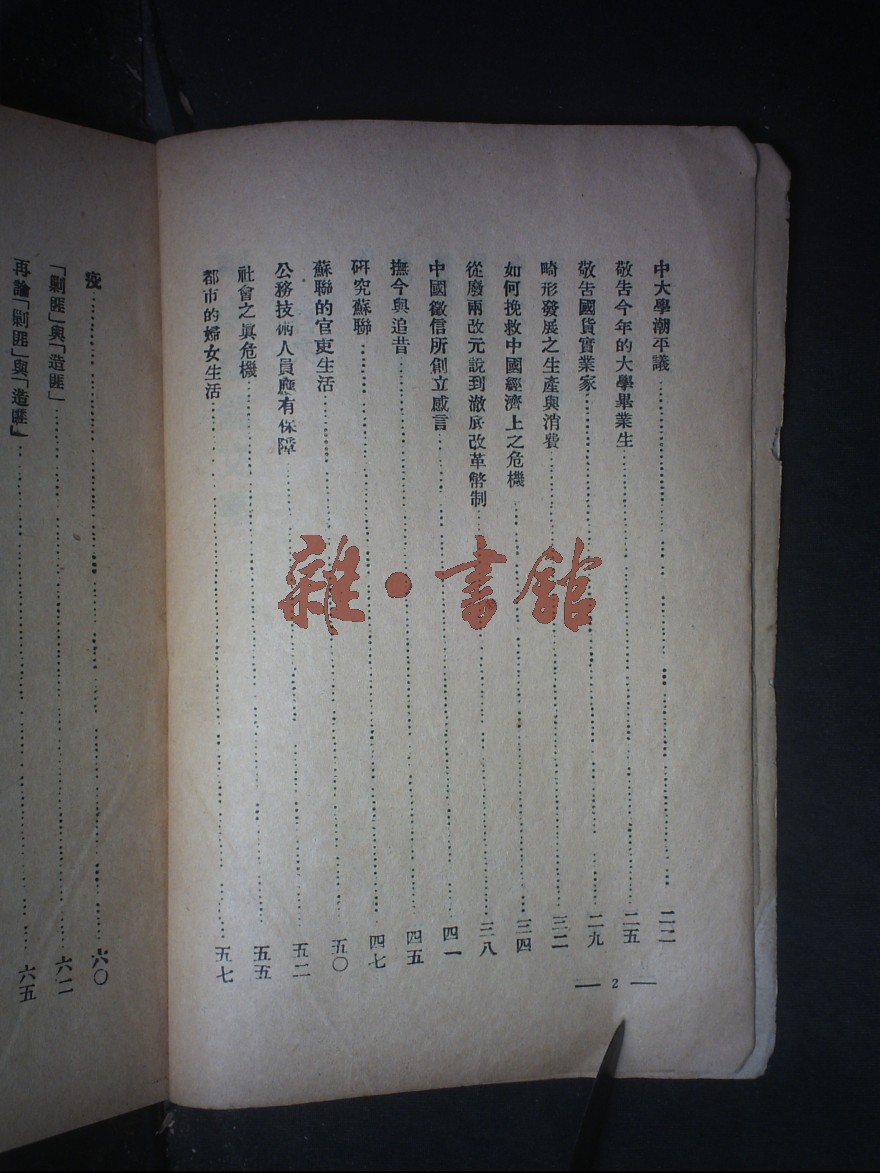 中大學潮平議 二二
敬告今年的大學畢業生 二五
敬告國貨實業家 二九
畸形發展之生產與消費 三二
如何挽救中國經濟上之危機 三四
從廢兩改元說到澈底改革幣制 三八
中國徵信所創立感言 四一
撫今與追昔 四五
研究蘇聯 四七
蘇聯的官吏生活 五〇
公務技術人員應有保障 五二
社會之眞危機 五五
都市的婦女生活 五七
— 2 —
疫 六〇
「剿匪」與「造匪」 六二
再論「剿匪」與「造匪」 六五
雜·書館